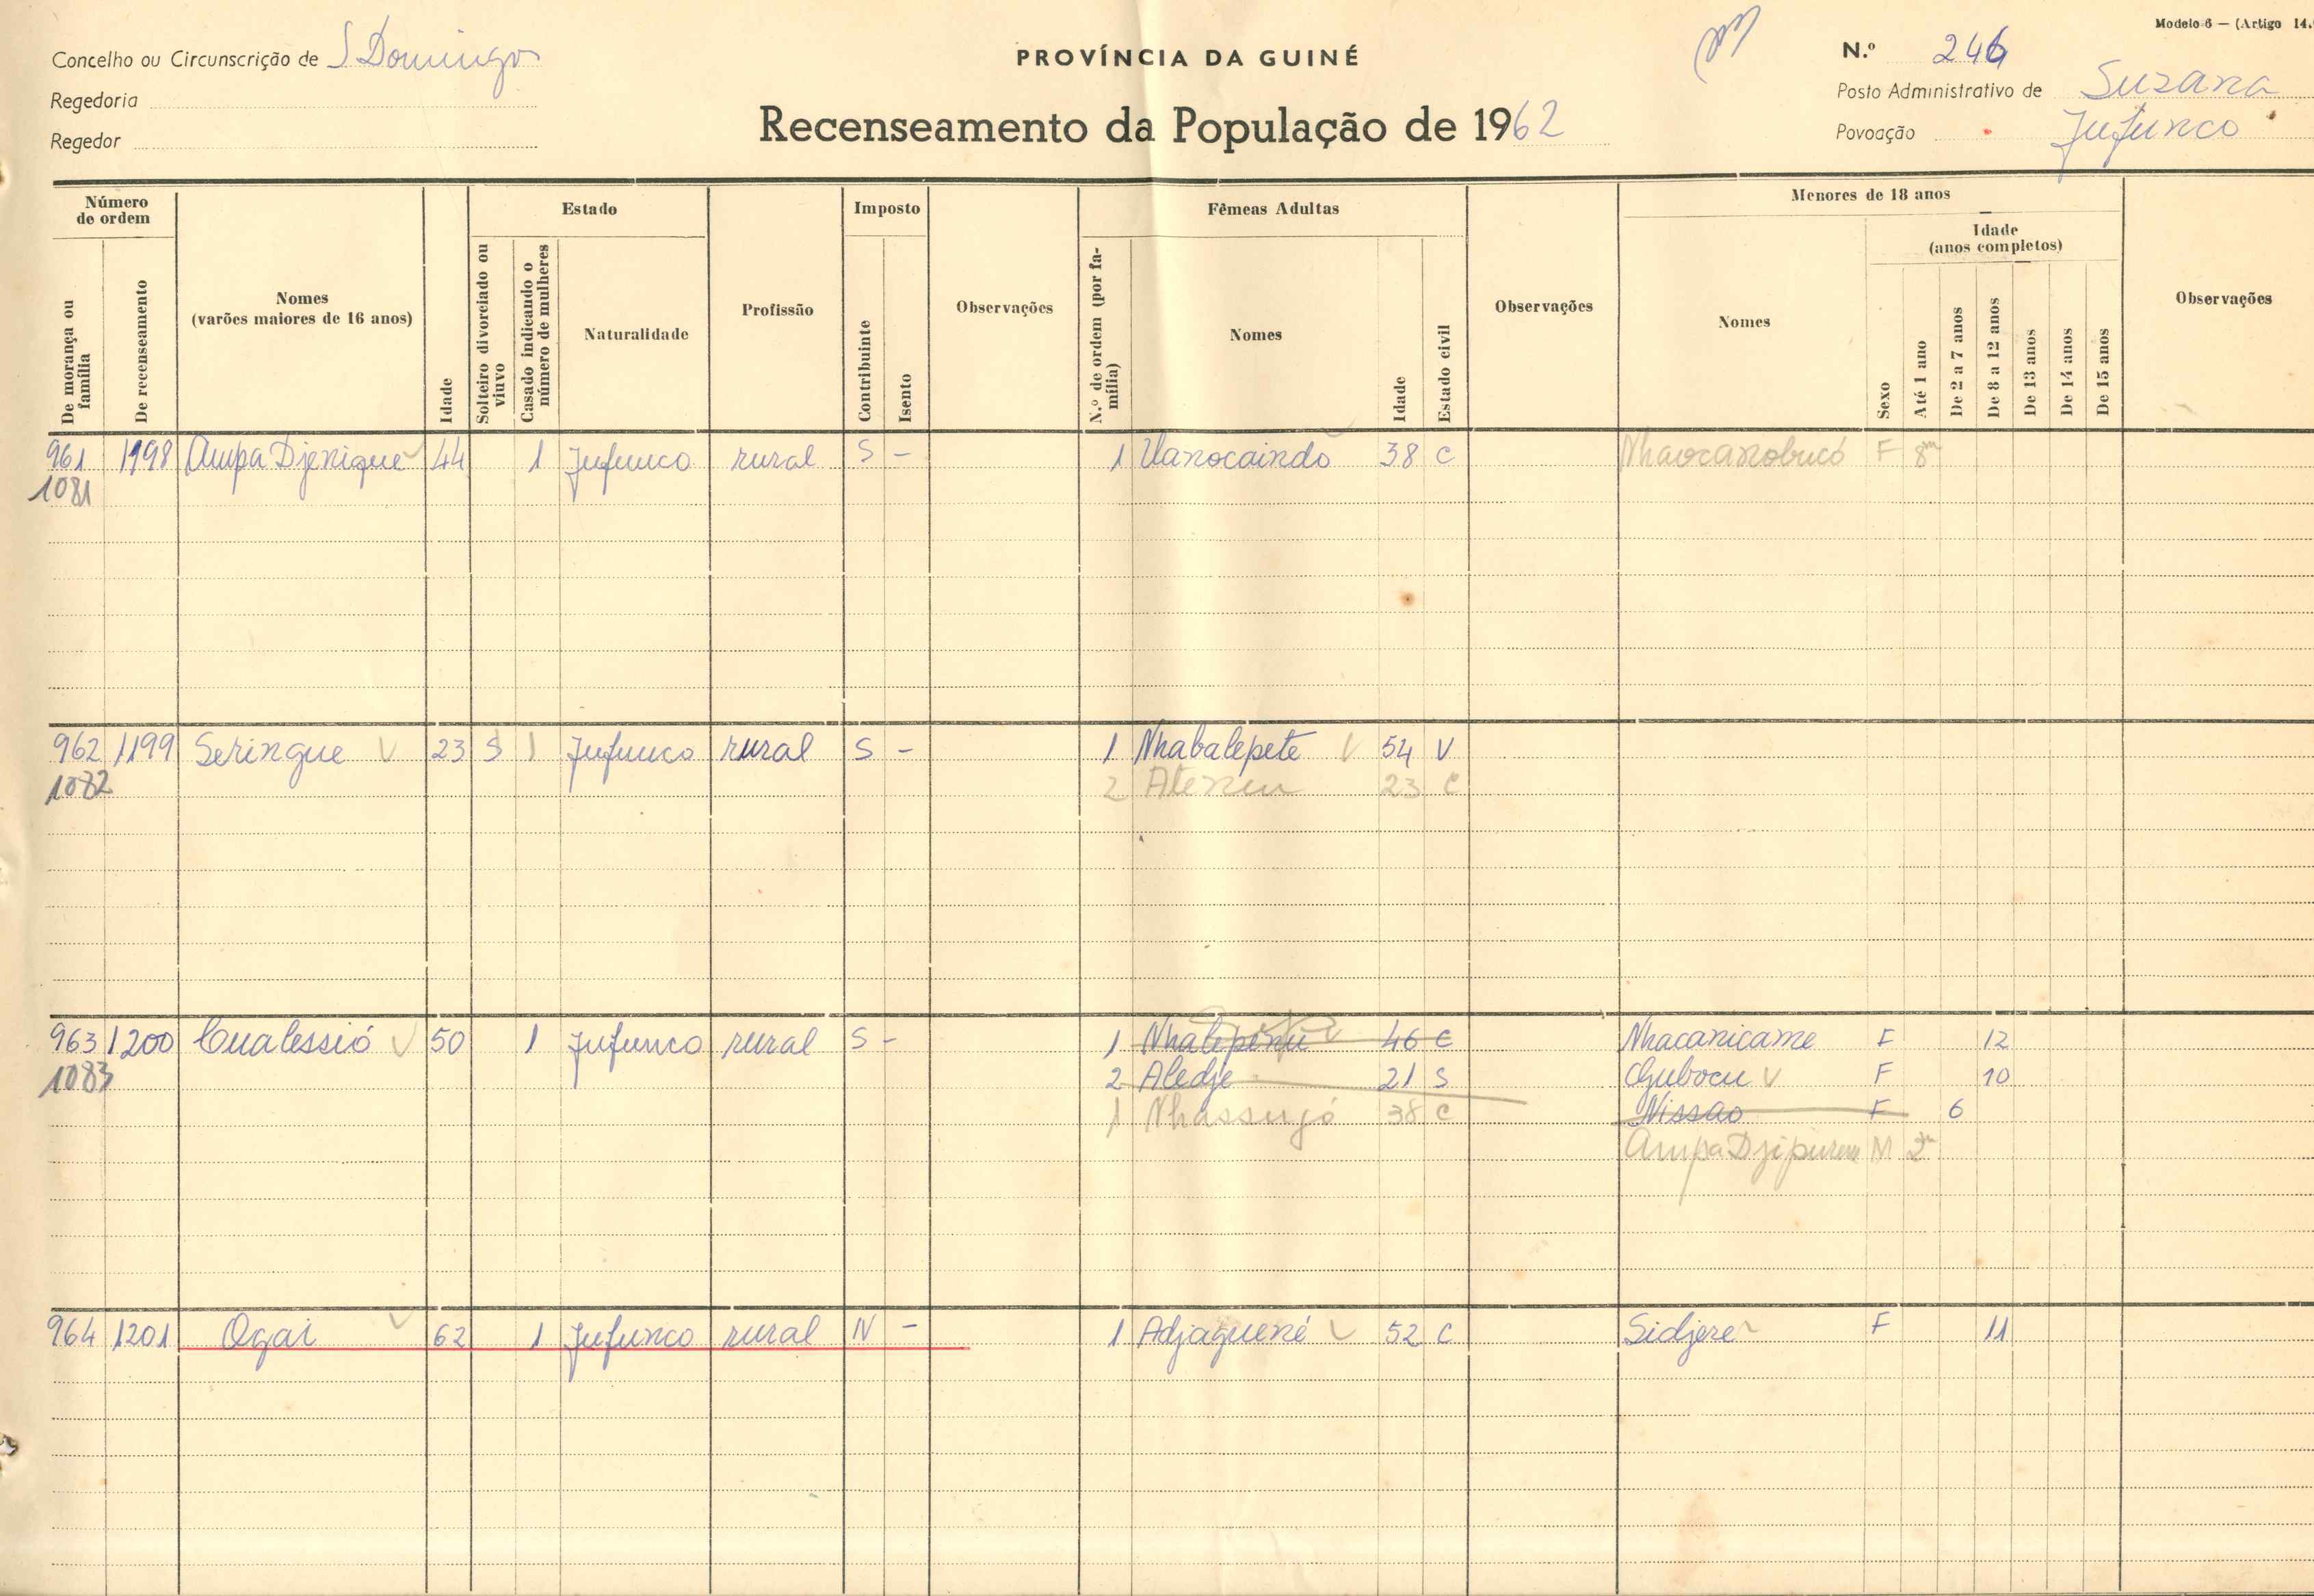 Modelo 6 — (Artigo 14.
Concelho ou Circunscrição de S Domingos
PROVÍNCIA DA GUINÉ
N.º 246
Regedoria
Posto Administrativo de Suzana
Regedor
Recenseamento da População de 1962
Povoação Jufunco
Número de ordem
De morança ou família
De recenseamento
Nomes (varões maiores de 16 anos)
Idade
Estado
Solteiro divorciado ou viuvo
Casado indicando o número de mulheres
Naturalidade
Profissão
Imposto
Contribuinte
Isento
Observações
Fêmeas Adultas
N.º de ordem (por família)
Nomes
Idade
Estado civil
Observações
Menores de 18 anos
Nomes
Sexo
Idade (anos completos)
Até 1 ano
De 2 a 7 anos
De 8 a 12 anos
De 13 anos
De 14 anos
De 15 anos
Observações
961 1198 Ampa Djenique 44 1 Jufunco rural S - 1 Uanocaindo 38 C Nhaocanobucó F 8m
1081
962 1199 Seringue V 23 S 1 Jufunco rural S - 1 Nhabalepete V 54 V
1082 2 Ateneu 23 C
963 1200 Cualessió V 50 1 Jufunco rural S - 1 Nhalepenu 46 C Nhacanicame F 12
1083 2 Aledje 21 S Gubocu V F 10
1 Nhassujó 38 C Nissao F 6
Ampa Djipurem M 2m
964 1201 Ogai V 62 1 Jufunco rural N - 1 Adjaguené V 52 C Sidjere F 11